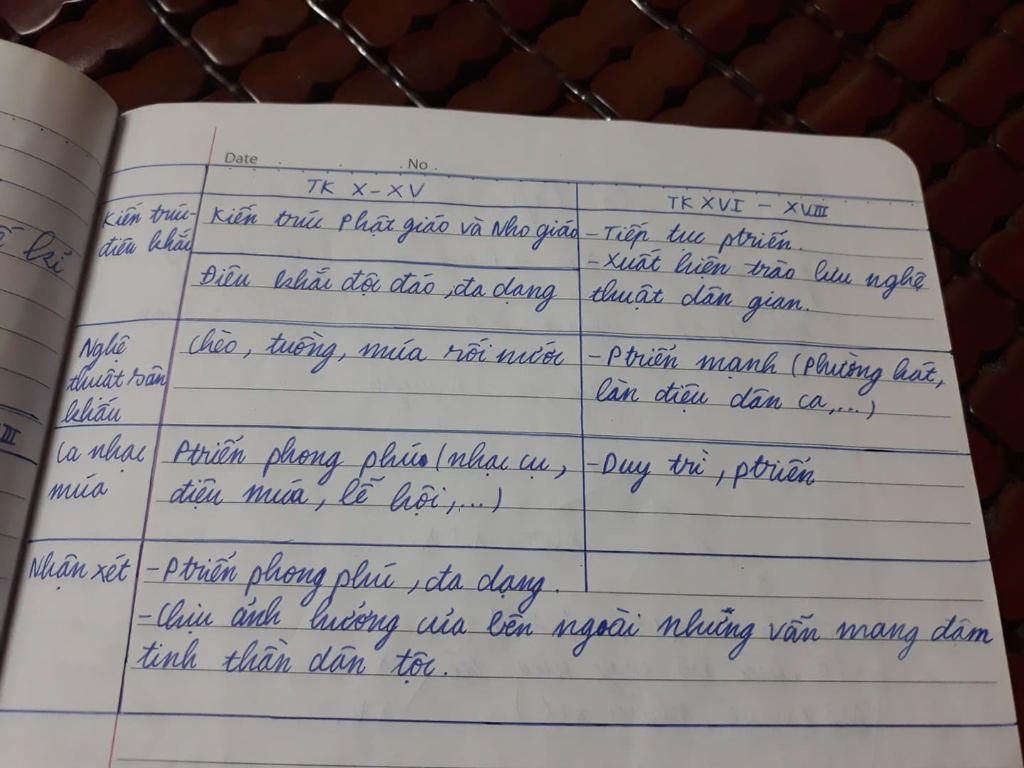 Date No
TK X - XV
TK XVI - XVIII
Kiến trúc-
điêu khắc
Kiến trúc Phật giáo và Nho giáo
Điêu khắc độc đáo, đa dạng
- Tiếp tục ptriển.
- Xuất hiện trào lưu nghệ
thuật dân gian.
Nghệ
thuật sân
khấu
Chèo, tuồng, múa rối nước
- Ptriển mạnh (phường hát,
làn điệu dân ca,...)
Ca nhạc
múa
Ptriển phong phú (nhạc cụ,
điệu múa, lễ hội,...)
- Duy trì, ptriển
Nhận xét
- Ptriển phong phú, đa dạng.
- Chịu ảnh hưởng của bên ngoài nhưng vẫn mang đậm
tinh thần dân tộc.